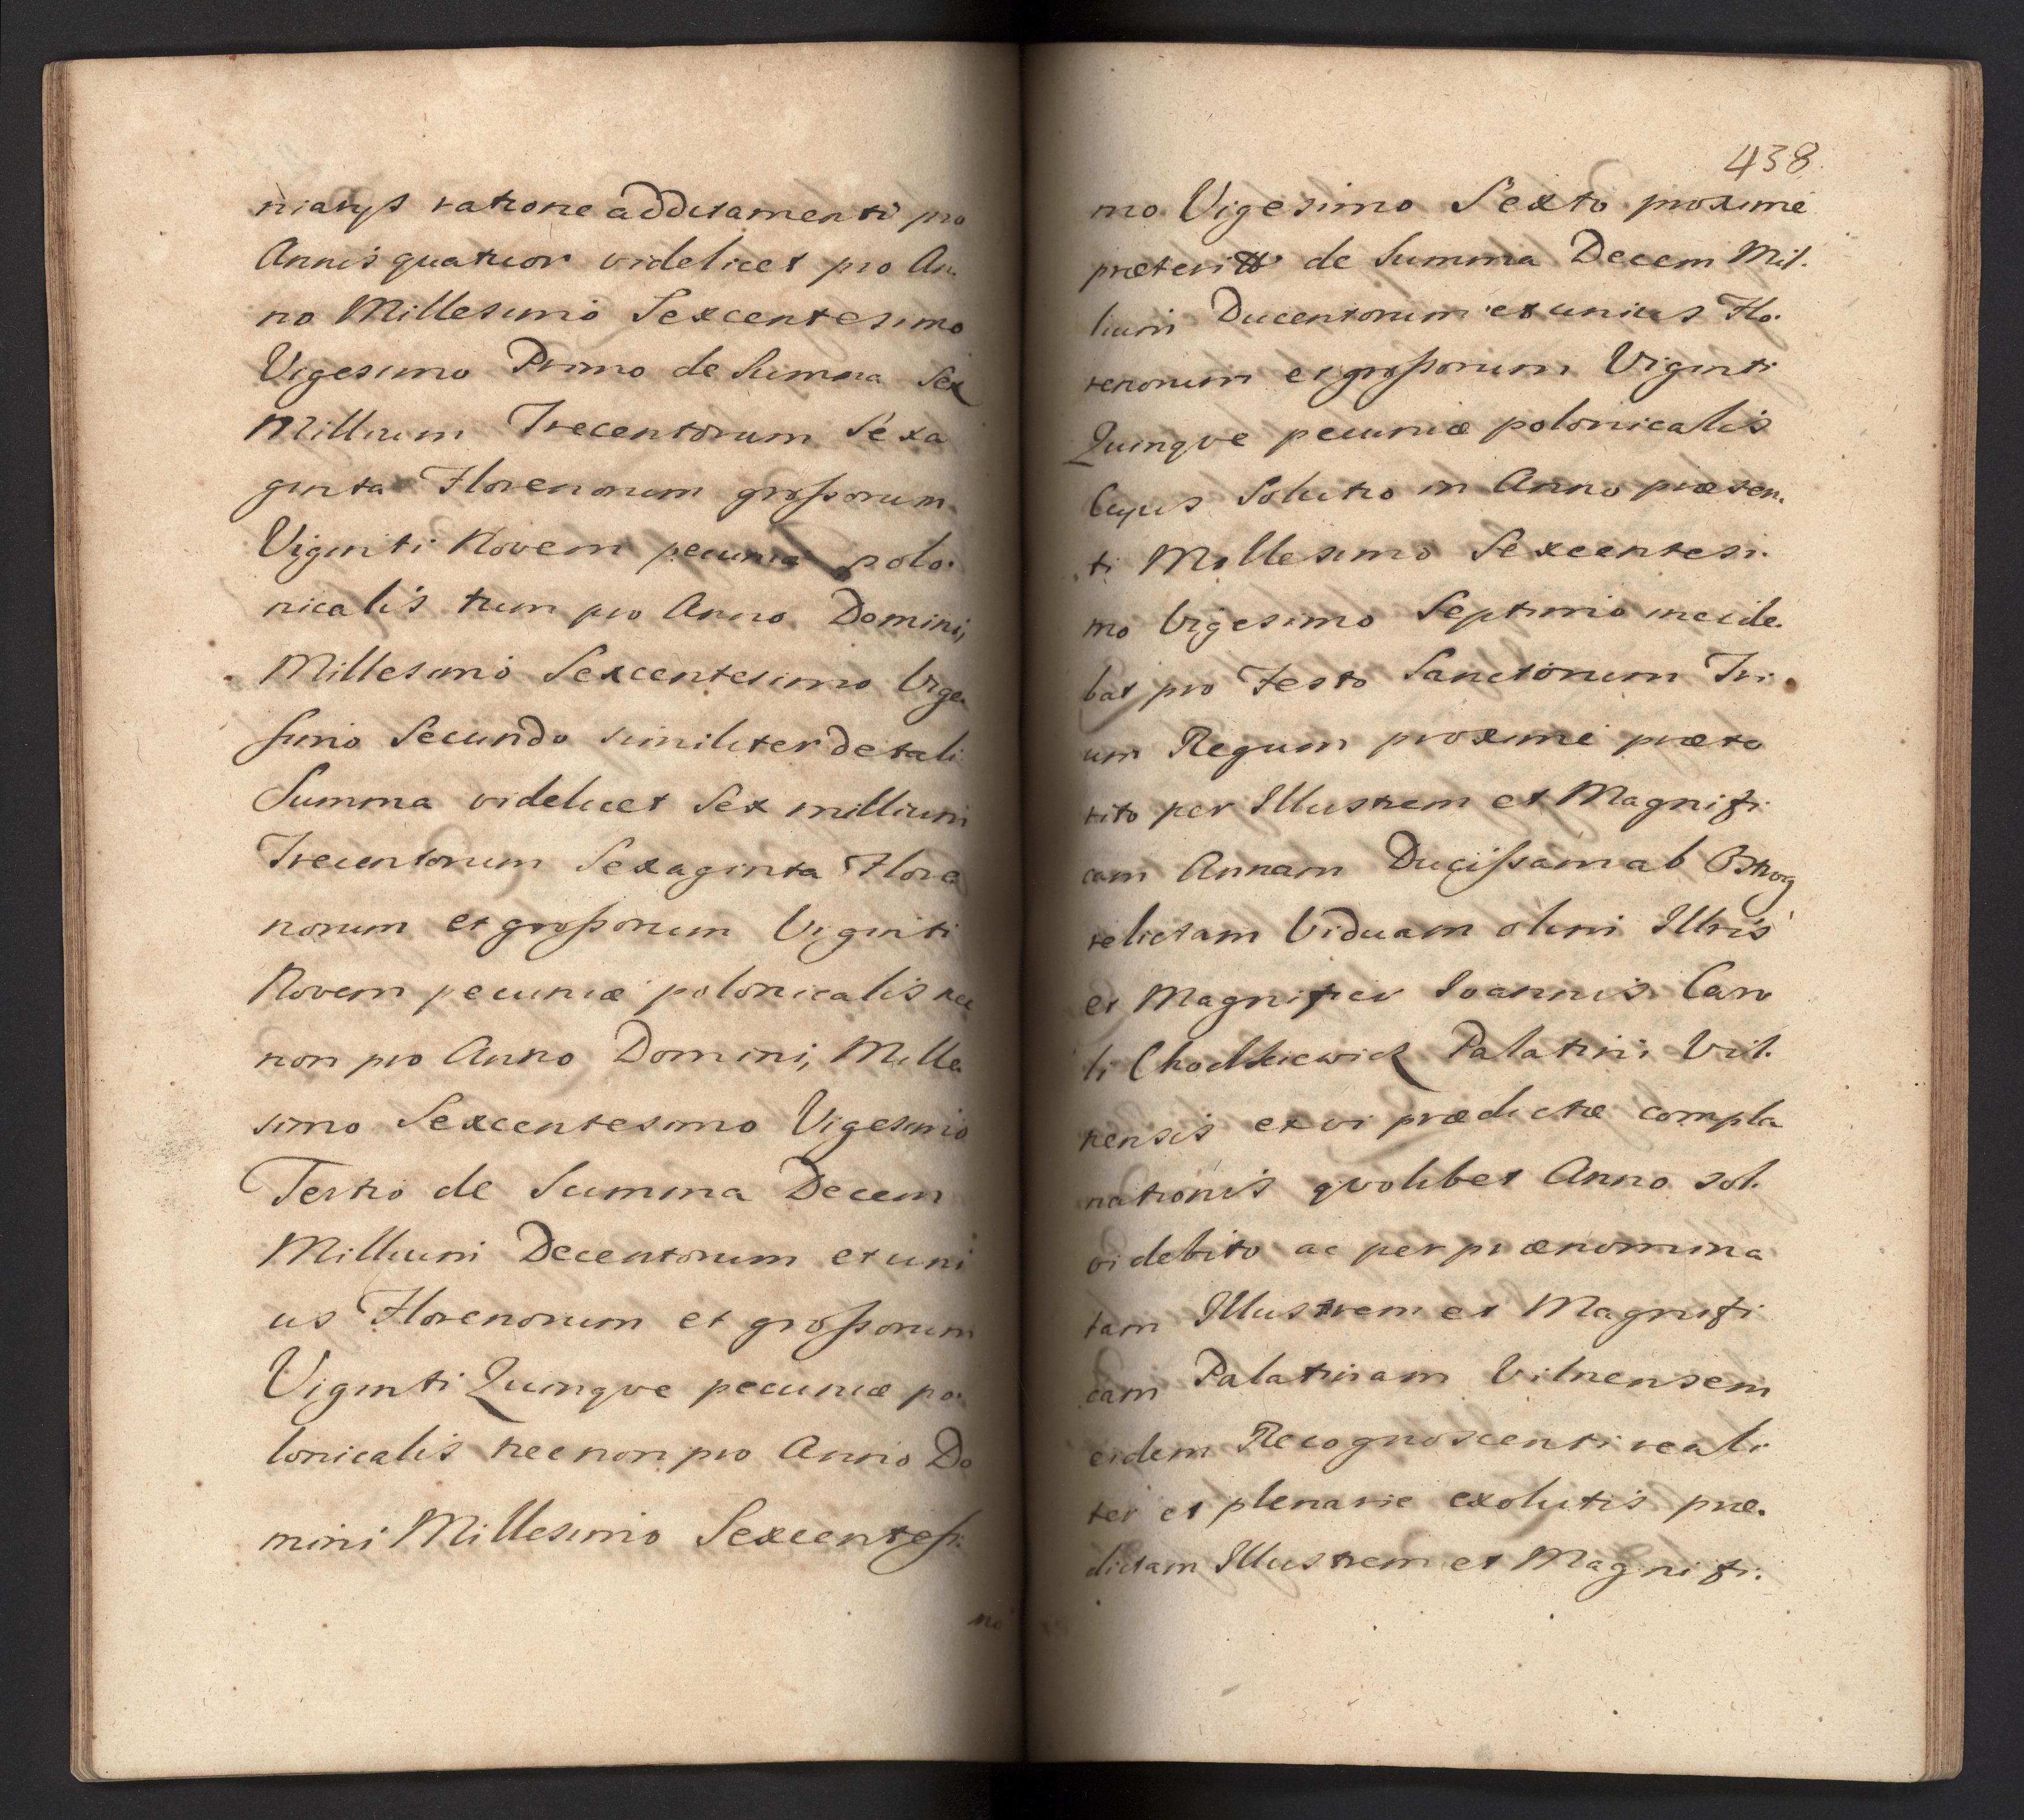 niarys ratione additamenti pro
Annis quatuor videlicet pro An
no Millesimo Sexcentesimo
Vigesimo Primo de Summa Sex
Millium Trecentorum Sexa
ginta Florenorum grossorum
Viginti Novem pecuniæ polo.
nicalis tum pro Anno Domini,
Millesimo Sexcentesimo Vige.
simo Secundo similiter de tali
Summa videlicet Sex millium
Trecentorum Sexaginta Flore
norum et grossorum Viginti
Novem pecuniæ polonicalis nec
non pro Anno Domini, Mille
simo Sexcentesimo Vigesimo
Tertio de Summa Decem
Millium Decentorum et uni
us Florenorum et grossorum
Viginti Quinqve pecuniæ po.
lonicalis nec non pro Anno Do
mini Millesimo Sexcentessi.
mo
438
mo Vigesimo Sexto proxime
præterito de Summa Decem Mil.
lium Ducentorum et unius Flo.
renorum et grossorum Viginti
Quinqve pecuniæ polonicalis
Cujus Solutio in Anno præsen.
ti Millesimo Sexcentesi.
mo Vigesimo Septimo incide.
bat pro Festo Sanctorum Tri.
um Regum proxime præte
rito per Illustrem et Magnifi
cam Annam Ducissam ab Ostrog
relictam Viduam olim Illris
et Magnifici Ioannis Caro
li Chodkiewicz Palatini Vil.
nensis ex vi prædictæ compla
nationis qvolibet Anno sol.
vi debito ac per prænomina
tam Illustrem et Magnifi
cam Palatinam Vilnensem
eidem Recognoscenti reali
ter et plenarie exolutis præ.
dictam Illustrem et Magnifi.